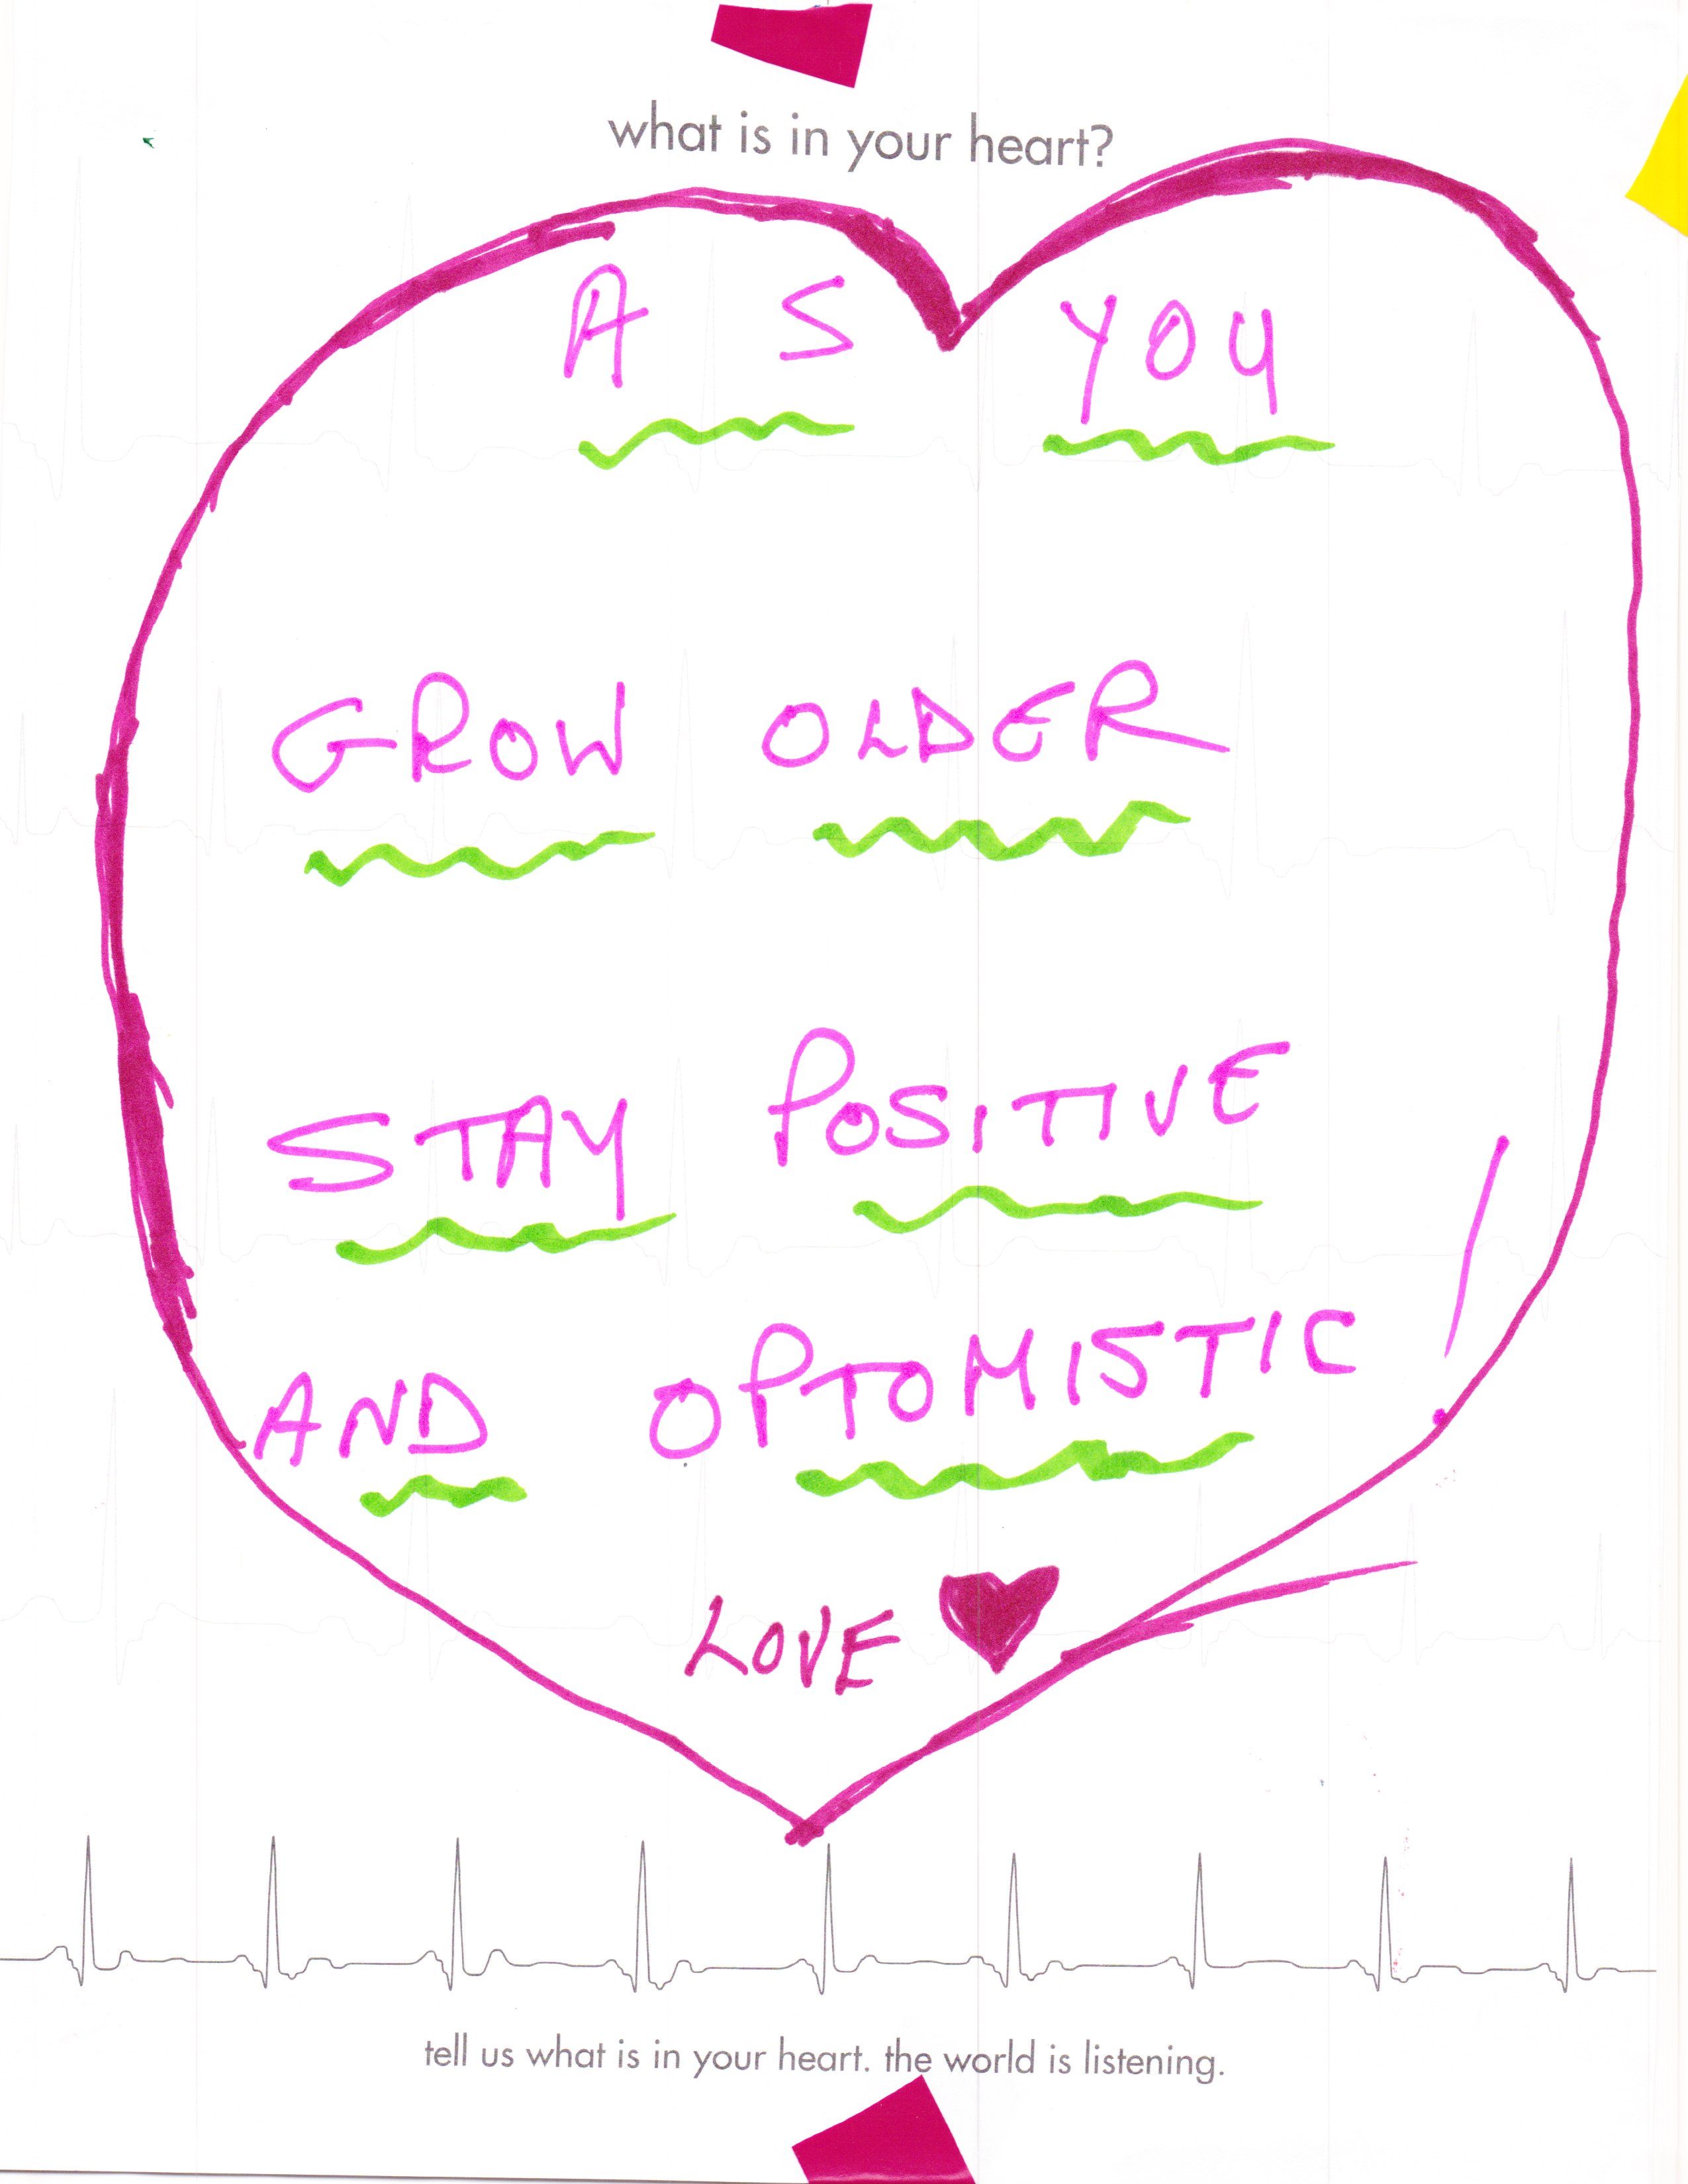 what is in your heart?
AS YOU
GROW OLDER
STAY POSITIVE
AND OPTOMISTIC!
LOVE
tell us what is in your heart. the world is listening.